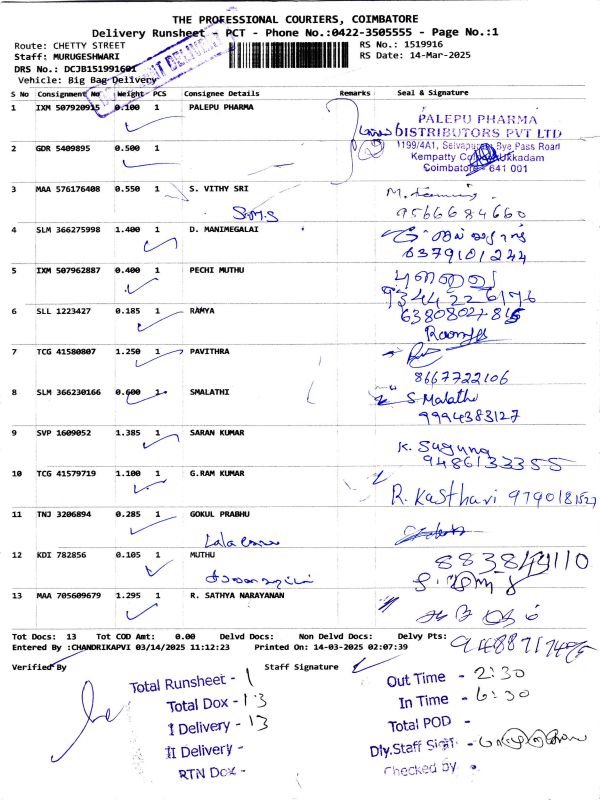 THE PROFESSIONAL COURIERS, COIMBATORE
Delivery Runsheet - PCT - Phone No.:0422-3505555 - Page No.:1
Route: CHETTY STREET
RS No.: 1519916
Staff: MURUGESHWARI
RS Date: 14-Mar-2025
DRS No.: DCJB151991601
Vehicle: Big Bag Delivery
S No Consignment No Weight PCS Consignee Details Remarks Seal & Signature
1 IXM 507920915 0.100 1 PALEPU PHARMA
PALEPU PHARMA
DISTRIBUTORS PVT LTD
1199/4A1, Selvapuram Bye Pass Road
Kempatty Ukkadam
Coimbatore - 641 001
2 GDR 5409895 0.500 1
3 MAA 576176408 0.550 1 S. VITHY SRI
9566684660
4 SLM 366275998 1.400 1 D. MANIMEGALAI
6379101244
5 IXM 507962887 0.400 1 PECHI MUTHU
9344226176
6 SLL 1223427 0.185 1 RAMYA
7 TCG 41580807 1.250 1 PAVITHRA
8667722106
8 SLM 366230166 0.600 1 SMALATHI
S Malathi
9994383127
9 SVP 1609052 1.385 1 SARAN KUMAR
K. Suguna
9486133355
10 TCG 41579719 1.100 1 G.RAM KUMAR
R. Kasthuri 9790181527
11 TNJ 3206894 0.285 1 GOKUL PRABHU
12 KDI 782856 0.105 1 MUTHU
13 MAA 705609679 1.295 1 R. SATHYA NARAYANAN
Tot Docs: 13 Tot COD Amt: 0.00 Delvd Docs: Non Delvd Docs: Delvy Pts:
Entered By :CHANDRIKAPVI 03/14/2025 11:12:23 Printed On: 14-03-2025 02:07:39
Verified By Staff Signature
Total Runsheet - 1
Total Dox - 13
I Delivery - 13
II Delivery -
RTN Dox -
Out Time - 2:30
In Time - 6:30
Total POD -
Dly.Staff Sign -
Checked by -